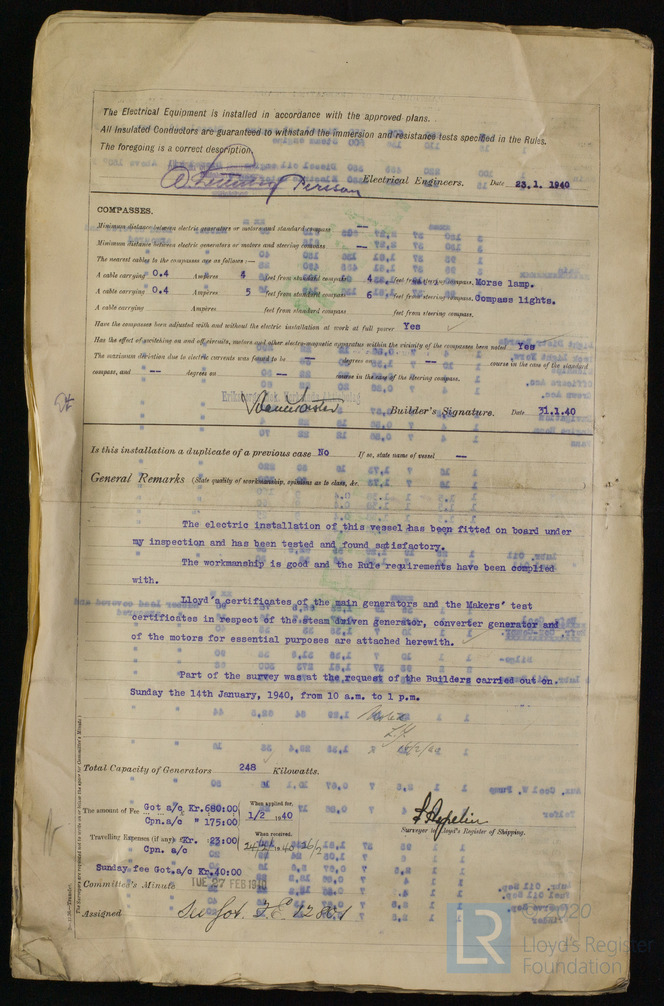 The Electrical Equipment is installed in accordance with the approved plans.
All Insulated Conductors are guaranteed to withstand the immersion and resistance tests specified in the Rules.
The foregoing is a correct description,
Electrical Engineers. Date 23.1. 1940
COMPASSES.
Minimum distance between electric generators or motors and standard compass —
Minimum distance between electric generators or motors and steering compass —
The nearest cables to the compasses are as follows:—
A cable carrying 0.4 Amperes 4 feet from standard compass 4 feet from steering compass. Morse lamp.
A cable carrying 0.4 Amperes 5 feet from standard compass 6 feet from steering compass. Compass lights.
A cable carrying Amperes feet from standard compass feet from steering compass.
Have the compasses been adjusted with and without the electric installation at work at full power Yes
Has the effect of switching on and off circuits, motors and other electro-magnetic apparatus within the vicinity of the compasses been noted Yes
The maximum deviation due to electric currents was found to be — degrees on — course in the case of the standard
compass, and — degrees on — course in the case of the steering compass.
Builder's Signature. Date 31.1.40
Is this installation a duplicate of a previous case No If so, state name of vessel —
General Remarks (State quality of workmanship, opinions as to class, &c.
The electric installation of this vessel has been fitted on board under
my inspection and has been tested and found satisfactory.
The workmanship is good and the Rule requirements have been complied
with.
Lloyd's certificates of the main generators and the Makers' test
certificates in respect of the steam driven generator, converter generator and
of the motors for essential purposes are attached herewith.
Part of the survey was at the request of the Builders carried out on
Sunday the 14th January, 1940, from 10 a.m. to 1 p.m.
Noted
Total Capacity of Generators 248 Kilowatts.
The amount of Fee Got a/c Kr.680:00 When applied for,
Cpn.a/c " 175:00 1/2 1940
Surveyor to Lloyd's Register of Shipping.
Travelling Expenses (if any) Kr. 23:00 When received,
Cpn. a/c
Sunday fee Got.a/c Kr.40:00
Committee's Minute TUE 27 FEB 1940
Assigned
© 2020
LR
Lloyd's Register
Foundation